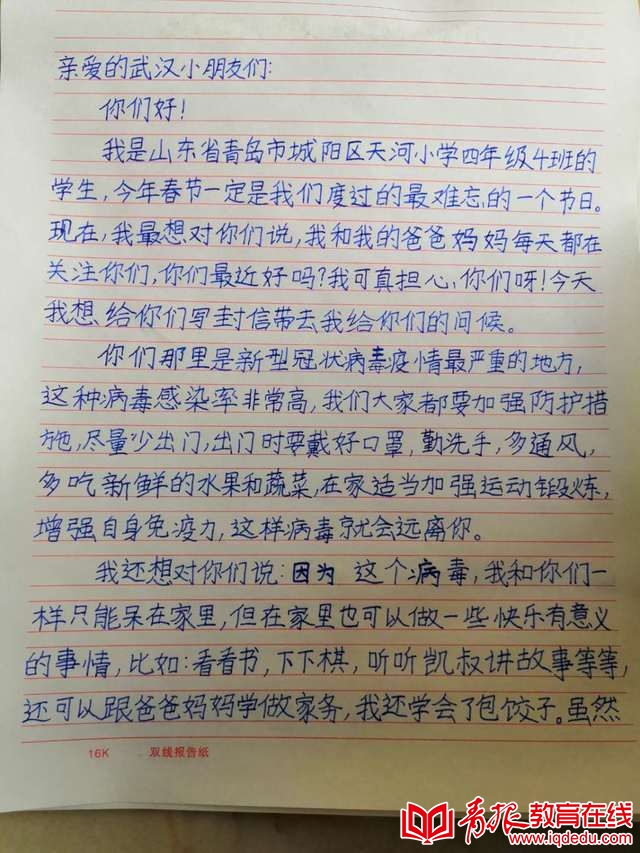 亲爱的武汉小朋友们:
你们好!
我是山东省青岛市城阳区天河小学四年级4班的
学生,今年春节一定是我们度过的最难忘的一个节日。
现在,我最想对你们说,我和我的爸爸妈妈每天都在
关注你们,你们最近好吗?我可真担心你们呀!今天
我想给你们写封信带去我给你们的问候。
你们那里是新型冠状病毒疫情最严重的地方,
这种病毒感染率非常高,我们大家都要加强防护措
施,尽量少出门,出门时要戴好口罩,勤洗手,多通风,
多吃新鲜的水果和蔬菜,在家适当加强运动锻炼,
增强自身免疫力,这样病毒就会远离你。
我还想对你们说:因为这个病毒,我和你们一
样只能呆在家里,但在家里也可以做一些快乐有意义
的事情,比如:看看书,下下棋,听听凯叔讲故事等等,
还可以跟爸爸妈妈学做家务,我还学会了包饺子。虽然
16K 双线报告纸
青报教育在线
www.iqdedu.com